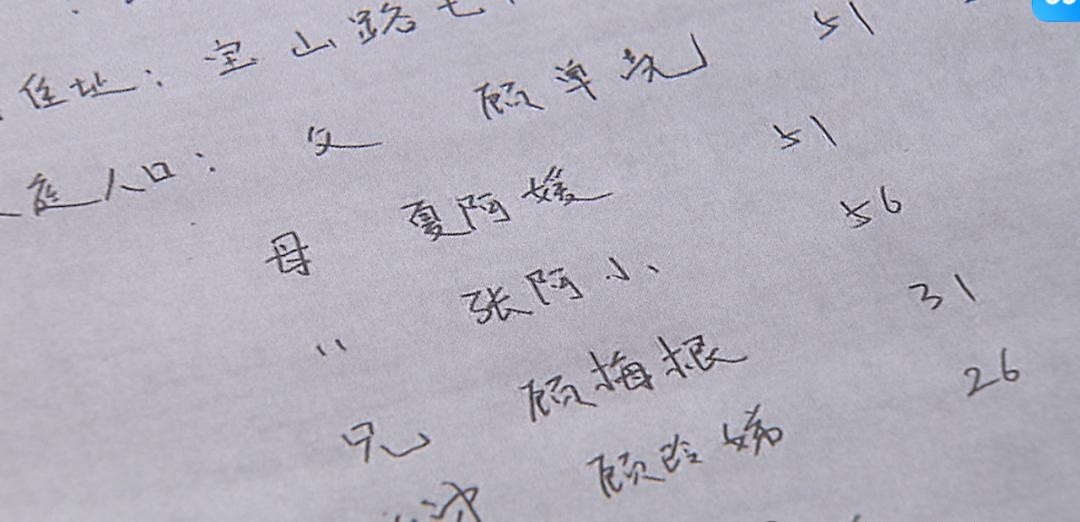 住址：宝山路七
庭人口：父 顾阜先 51
母 夏阿媛 51
〃 张阿小 56
兄 顾梅根 31
顾玲娣 26